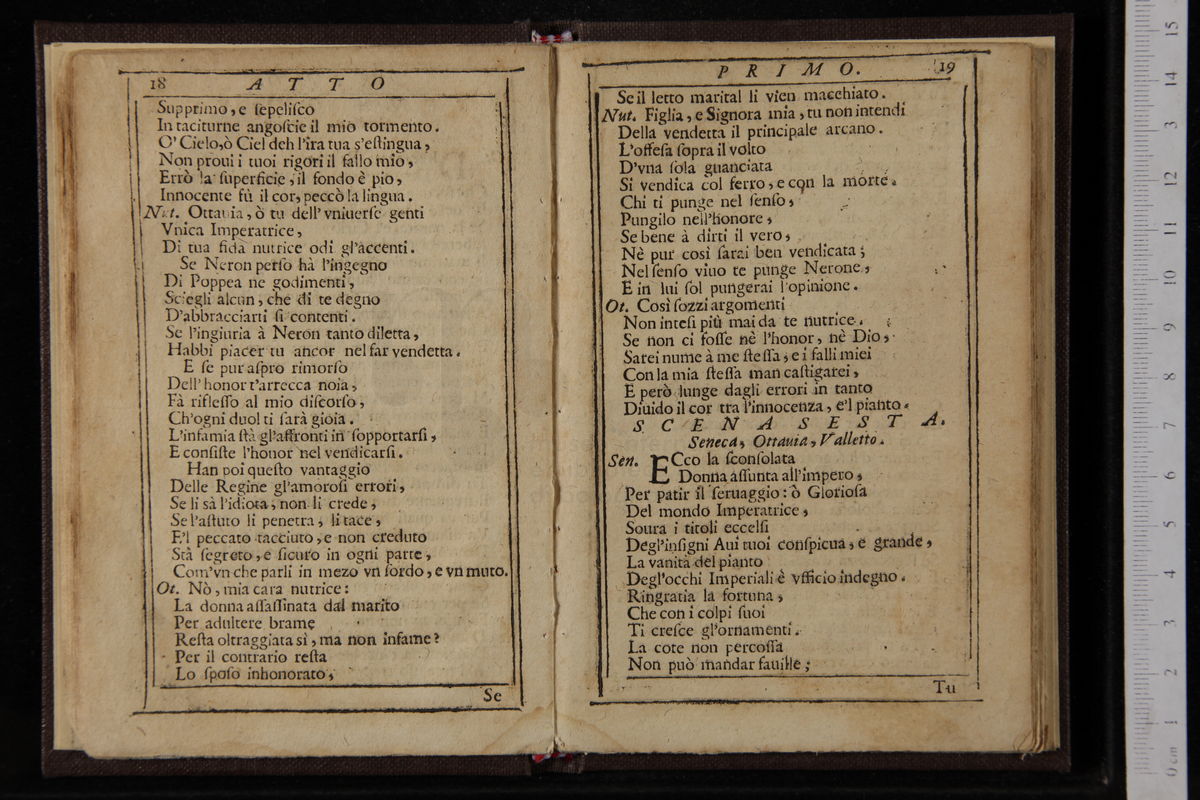 18 A T T O
Supprimo, e ſepeliſco
In taciturne angoſcie il mio tormento.
O' Cielo, ò Ciel deh l'ira tua s'eſtingua,
Non proui i tuoi rigori il fallo mio,
Errò la ſuperficie, il fondo è pio,
Innocente fù il cor, peccò la lingua.
Nut. Ottauia, ò tu dell'vniuerſe genti
Vnica Imperatrice,
Di tua fida nutrice odi gl'accenti.
Se Neron perſo hà l'ingegno
Di Poppea ne godimenti,
Sciegli alcun, che di te degno
D'abbracciarti ſi contenti.
Se l'ingiuria à Neron tanto diletta,
Habbi piacer tu ancor nel far vendetta.
E ſe pur aſpro rimorſo
Dell'honor t'arrecca noia,
Fà rifleſſo al mio diſcorſo,
Ch'ogni duol ti ſarà gioia.
L'infamia ſtà gl'affronti in ſopportarſi,
E conſiſte l'honor nel vendicarſi.
Han poi queſto vantaggio
Delle Regine gl'amoroſi errori,
Se li sà l'idiota, non li crede,
Se l'aſtuto li penetra, li tace,
E'l peccato tacciuto, e non creduto
Stà ſegreto, e ſicuro in ogni parte,
Com'vn che parli in mezo vn ſordo, e vn muto.
Ot. Nò, mia cara nutrice:
La donna aſſaſſinata dal marito
Per adultere brame
Reſta oltraggiata sì, ma non infame?
Per il contrario reſta
Lo ſpoſo inhonorato,
Se
P R I M O. 19
Se il letto marital li vien macchiato.
Nut. Figlia, e Signora mia, tu non intendi
Della vendetta il principale arcano.
L'offeſa ſopra il volto
D'vna ſola guanciata
Si vendica col ferro, e con la morte.
Chi ti punge nel ſenſo,
Pungilo nell'honore,
Se bene à dirti il vero,
Nè pur così ſarai ben vendicata;
Nel ſenſo viuo te punge Nerone,
E in lui ſol pungerai l'opinione.
Ot. Così ſozzi argomenti
Non inteſi più mai da te nutrice.
Se non ci foſſe nè l'honor, nè Dio,
Sarei nume à me ſteſſa, e i falli miei
Con la mia ſteſſa man caſtigarei,
E però lunge dagli errori in tanto
Diuido il cor tra l'innocenza, e'l pianto.
S C E N A S E S T A.
Seneca, Ottauia, Valletto.
Sen. ECco la ſconſolata
Donna aſſunta all'impero,
Per patir il ſeruaggio: ò Glorioſa
Del mondo Imperatrice,
Soura i titoli eccelſi
Degl'inſigni Aui tuoi conſpicua, e grande,
La vanità del pianto
Degl'occhi Imperiali è vfficio indegno.
Ringratia la fortuna,
Che con i colpi ſuoi
Ti creſce gl'ornamenti.
La cote non percoſſa
Non può mandar fauille;
Tu
0 cm 1 2 3 4 5 6 7 8 9 10 11 12 3 14 15